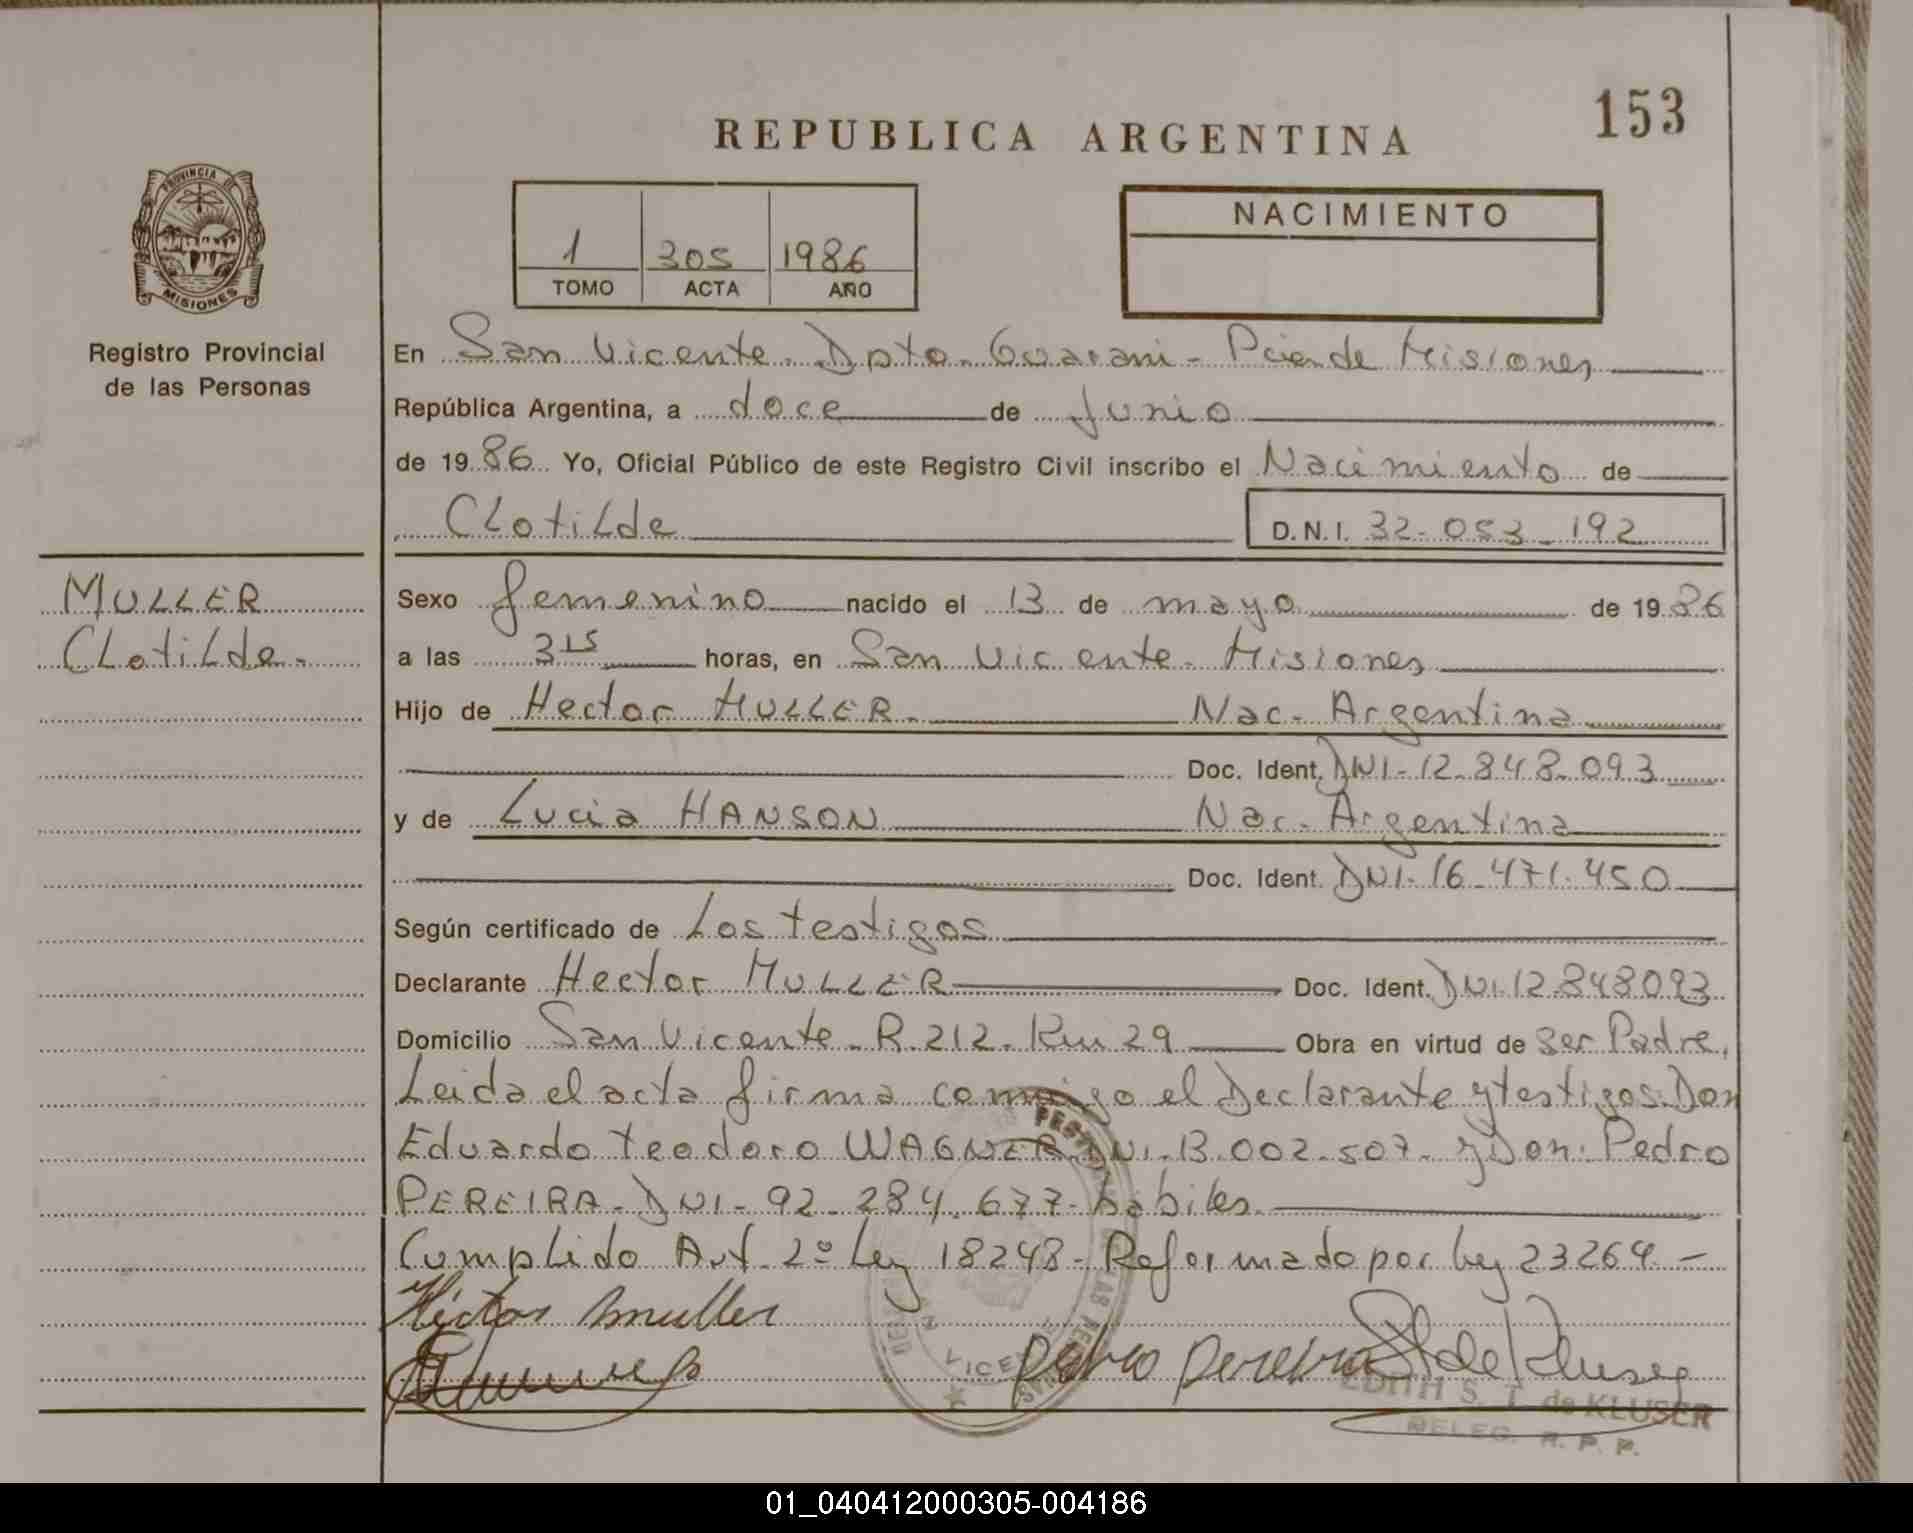 153
REPUBLICA ARGENTINA
PROVINCIA DE
MISIONES
Registro Provincial
de las Personas
1 305 1986
TOMO ACTA AÑO
NACIMIENTO
En San Vicente - Dpto. Guarani - Pcia de Misiones
República Argentina, a doce de Junio
de 1986 Yo, Oficial Público de este Registro Civil inscribo el Nacimiento de
CLotiLde D.N.I. 32-053-192
MULLER
CLotiLde.
Sexo femenino nacido el 13 de mayo de 1986
a las 3 15 horas, en San Vicente - Misiones
Hijo de Hector MULLER. Nac. Argentina
Doc. Ident. DNI-12.848.093
y de Lucia HANSON Nac. Argentina
Doc. Ident. DNI-16.471.450
Según certificado de Los testigos
Declarante Hector MULLER Doc. Ident. DNI-12.848093
Domicilio San Vicente - R. 212 - Km 29 Obra en virtud de ser Padre.
Leida el acta firma conmigo el Declarante y testigos Don
Eduardo teodoro WAGNER DNI-13.002.507- y Don: Pedro
PEREIRA - DNI - 92.284.677- habiles.
Cumplido Art. 2º Ley 18248- Reformado por Ley 23264.-
Héctor Muller
Pedro Pereira S T de Kluser
VICENTE
EDITH S. T. de KLUSER
DELEG. R. P. P.
01_040412000305-004186